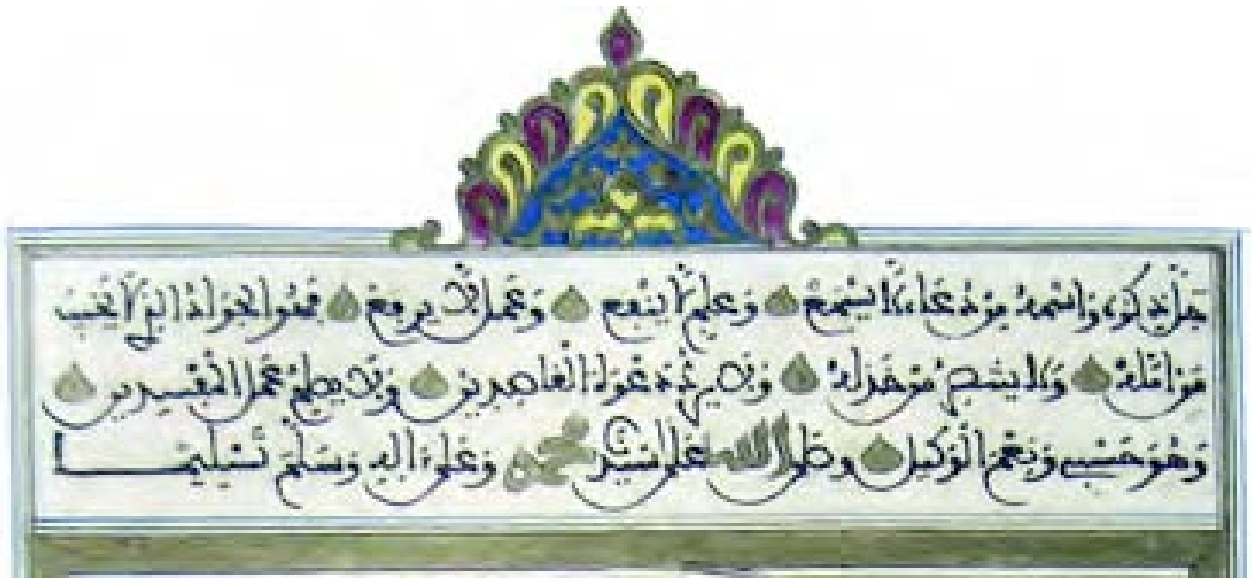 جل ذكره واسمه من دعاء لا يسمع وعلم لا ينفع وعمل لا يرفع فهو الجواد الذي لا يخيب
من أمله ولا من خذله ولا دعوة القاصدين ولا يصلح عمل المفسدين
وهو حسبي ونعم الوكيل وصلى الله على سيدنا محمد وعلى ءاله وسلم تسليما